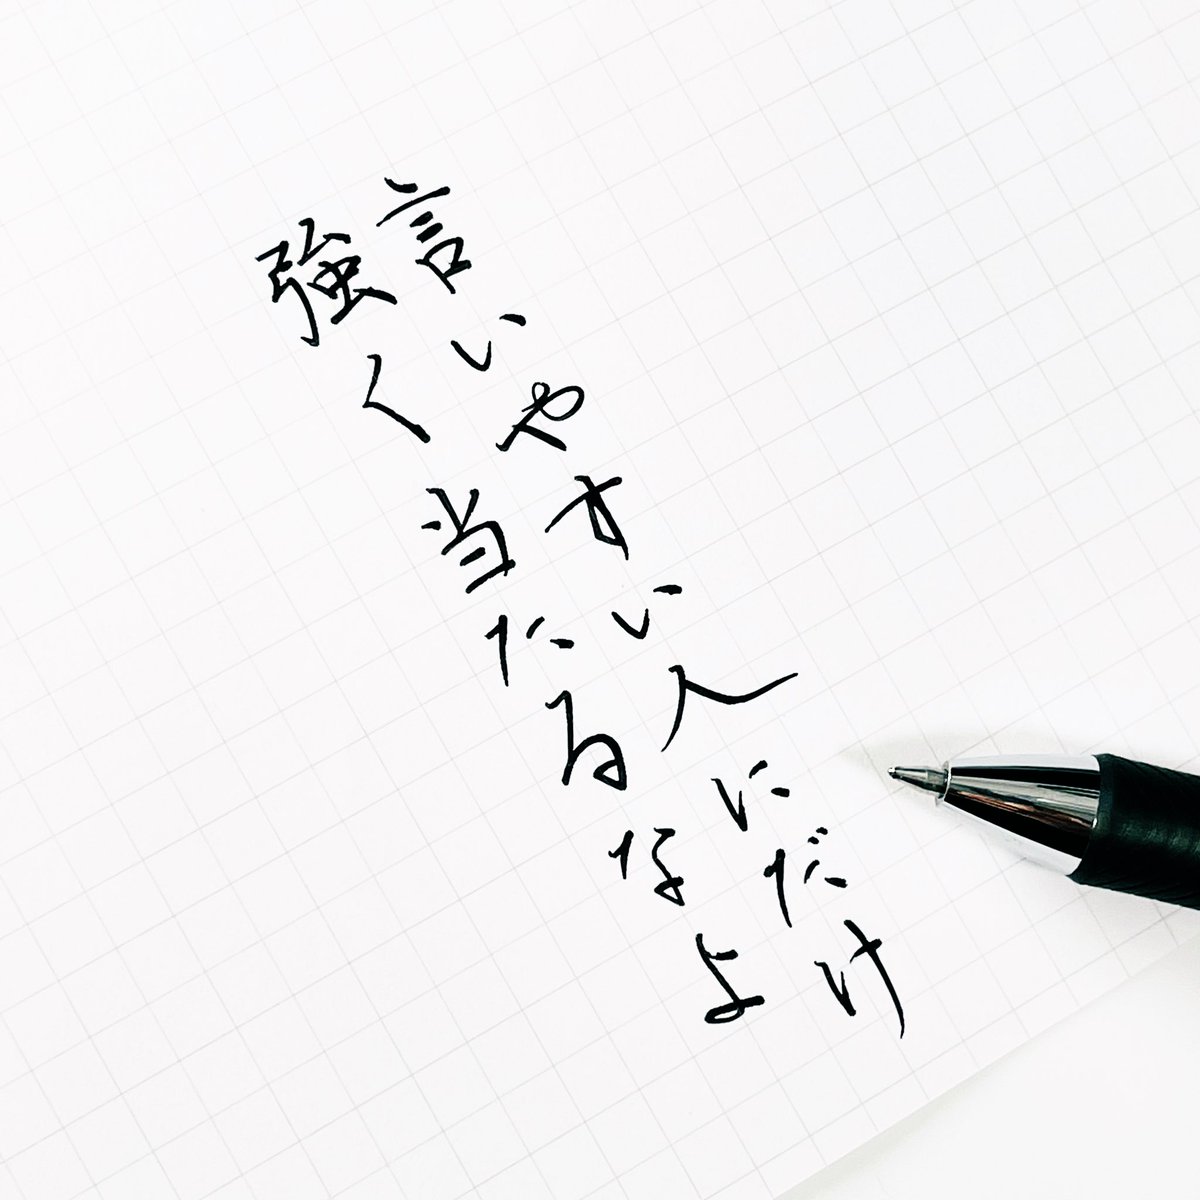 言いやすい人にだけ
強く当たるなよ